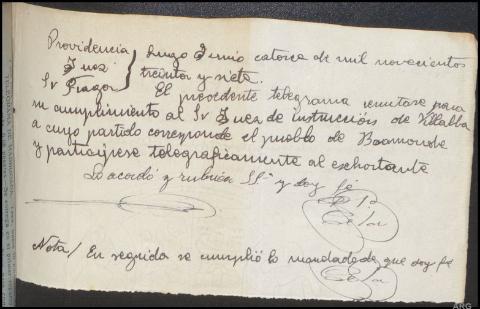 Providencia } Lugo Junio catorce de mil novecientos
Juez } treinta y siete.
Sr Tiagor } El precedente telegrama remitase para
su cumplimiento al Sr Juez de instrucción de Villalba
a cuyo partido corresponde el pueblo de Baamonde
y participese telegraficamente al exhortante
Lo acordó y rubrica SSª y doy fé
Nota/ En seguida se cumplió lo mandado de que doy fé
ARG